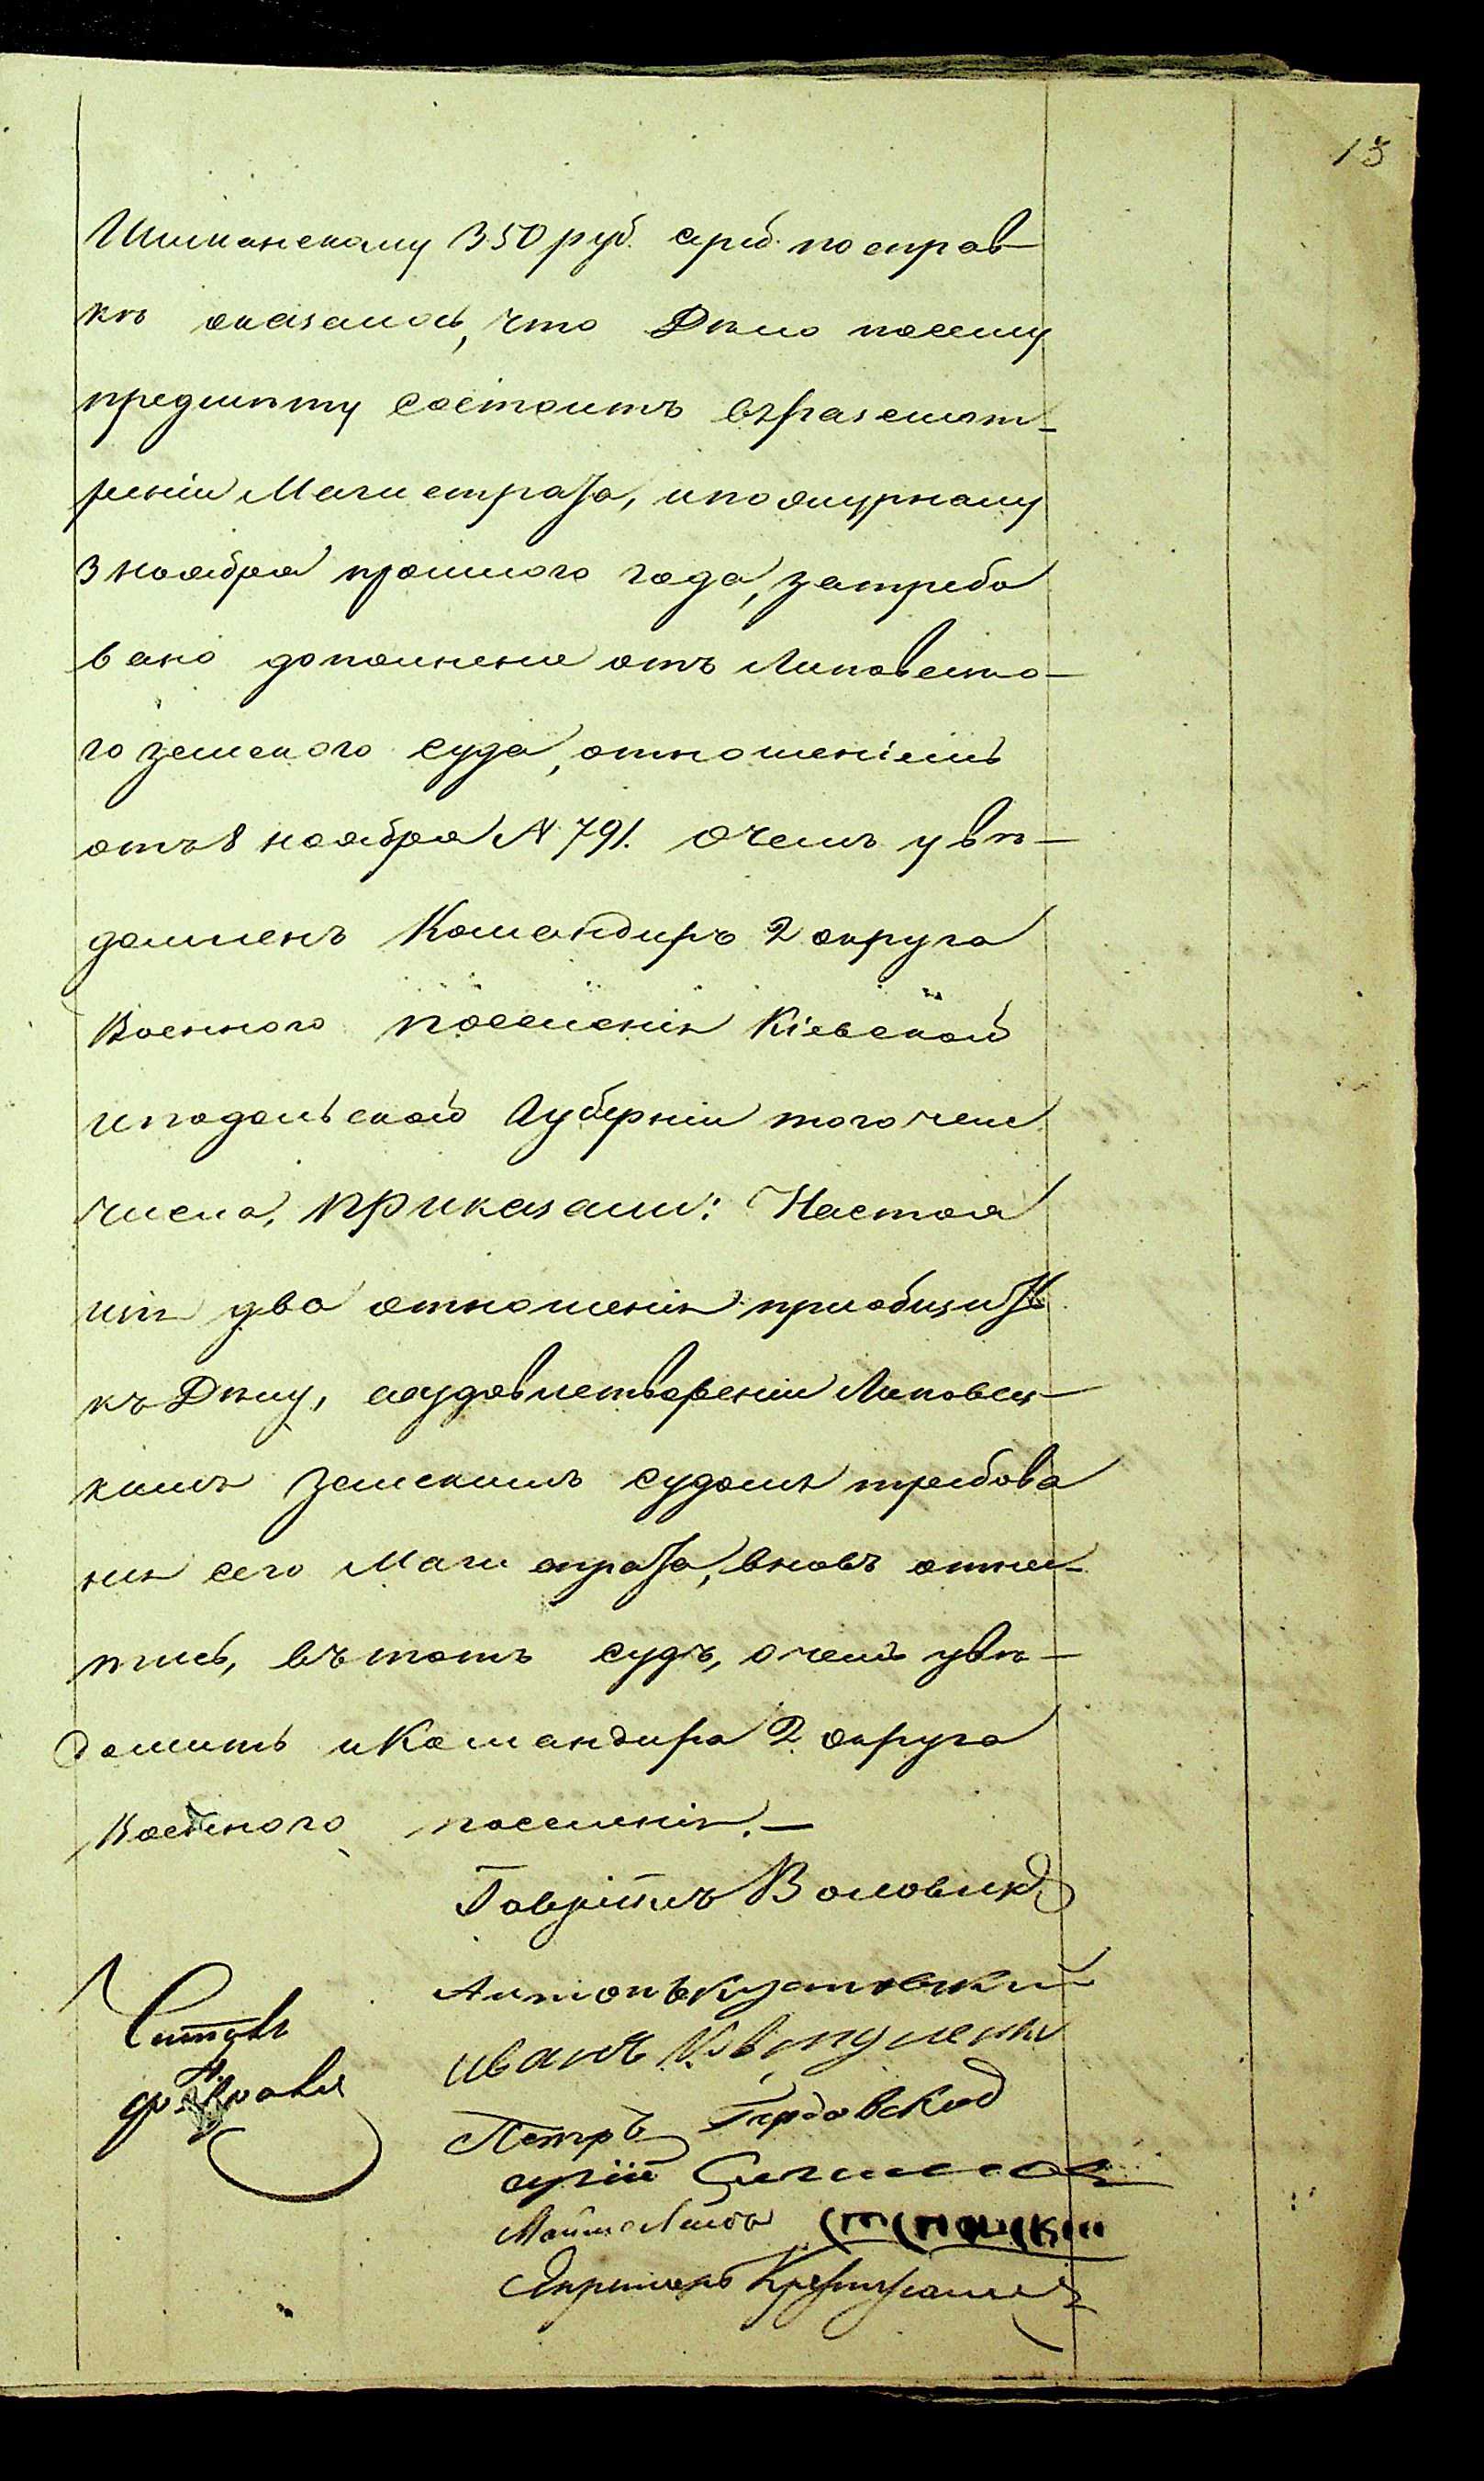 15
Шиманскому 350 руб. сереб. посправ-
кѣ оказалось, что Дѣло посему
предмѣту состоитъ вразсмот-
рѣніи Магистрата, ипожурналу
3 ноября прошлого года, затребо
вано дополнение отъ Липовецко-
го земского суда, отношеніемъ
отъ 8 ноября № 791. очемъ увѣ-
домленъ Командиръ 2 округа
Военного поселенія Кіевской
иподольской Губерніи того чем
числа, приказали: Настоя
щіе два отношенія приобщить
къ Дѣлу, аоудовлетвореніи Липовец-
кимъ земскимъ судомъ требова
нія сего Магистрата, вновъ отне-
стись, въ тотъ судъ, очемъ увѣ-
домить иКомандира 2 округа
Военного поселенія.—
Гавріилъ Воловикъ
Антонъ
иванъ
Петръ